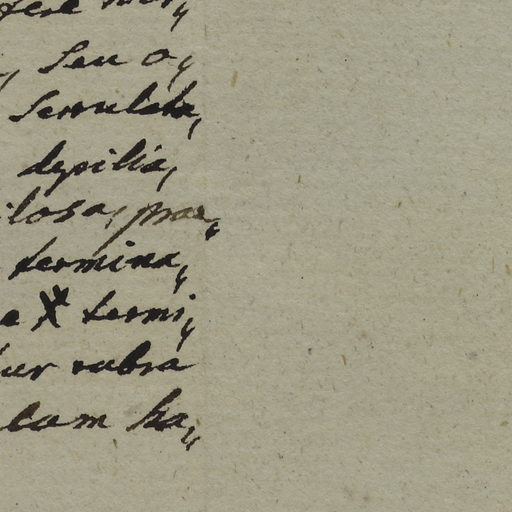 fere
, seu o„
serrulata„
depilia„
ilosa, prae„
termina„
e X termi„
tur rubra
lam ha„